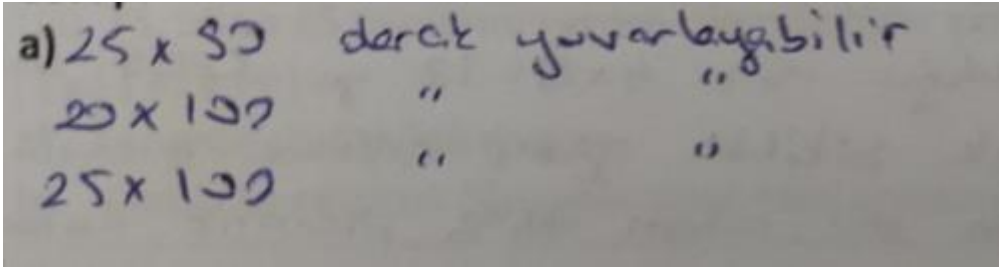 a) 25 x 90 darak yuvarlayabilir
20 x 100 " "
25 x 100 " "